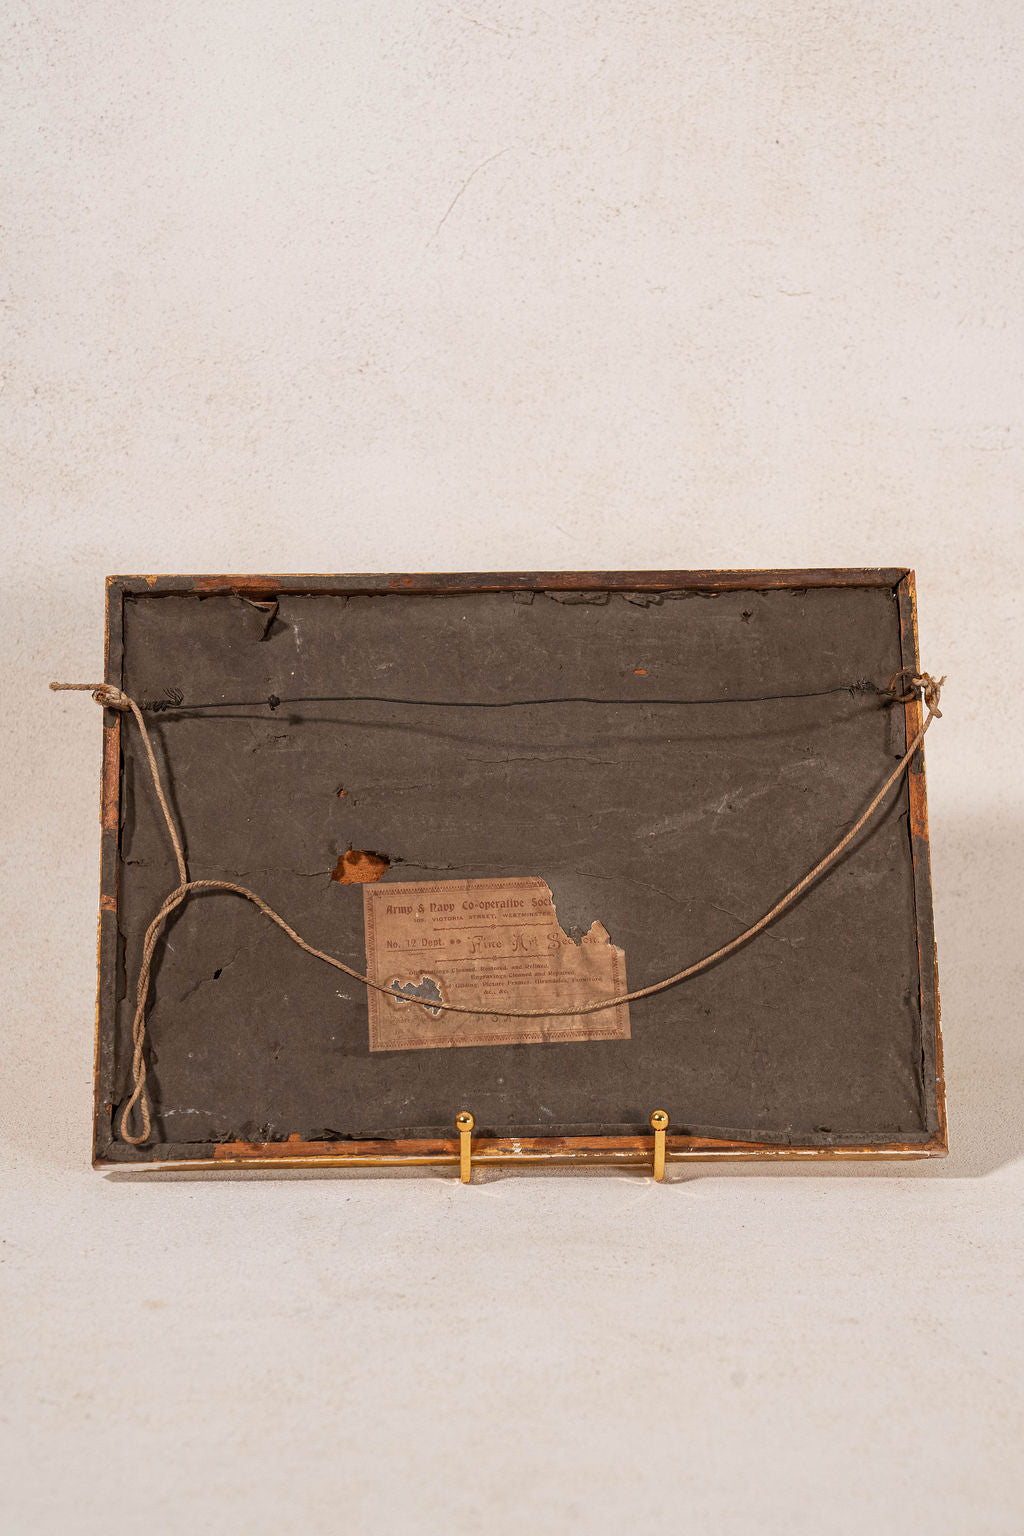 Army & Navy Co-operative Soci
105, VICTORIA STREET, WESTMINSTER
No. 12 Dept. Fine Art Section.
Oil Paintings Cleaned, Restored, and Relined.
Engravings Cleaned and Repaired.
Gilding, Picture Frames, Girandoles, Furniture,
&c., &c.